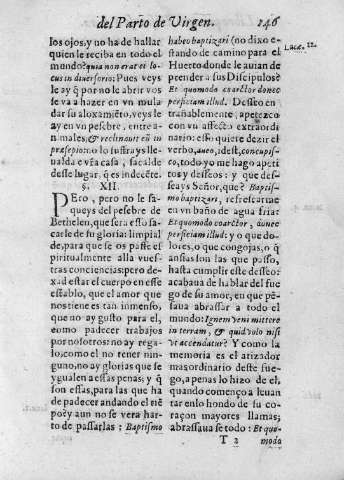 del Parto de Virgen. 146
los ojos, y no ha de hallar
quien le reciba en todo el
mundo? quia non erat ei lo-
cus in diuersorio: Pues veys
le ay q̃ por no le abrir vos
se va a hazer en vn mula
dar su aloxamiẽto, veys le
ay en vn pesebre, entre a-
nimales, & reclinauit eũ in
præsepio: no lo sufrays lle-
ualda e vr̃a casa, sacalde
desse lugar, q̃ es indecẽte.
§. XII.
PEro, pero no le sa-
queys del pesebre de
Bethelen, que sera esso sa-
carle de su gloria: limpial
de, para que se os passe es-
piritualmente alla vues-
tras conciencias; pero de-
xad estar el cuerpo en esse
establo, que el amor que
nos tiene es tan inmenso,
que no ay gusto para el,
como padecer trabajos
por nosotros: no ay rega-
lo, como el no tener nin-
guno, no ay glorias que se
ygualen a essas penas; y q̃
son essas, para las que ha
de padecer andando el tiẽ
po: y aun no se vera har-
to de passarlas: Baptismo
habeo baptizari (no dixo e-
stando de camino para el
Huerto donde le auian de
prender a sus Discipulos?
Et quomodo coarctor donec
perficiam illud. Desseo en-
trañablemente, apetezco
con vn affecto extraordi-
nario: esto quiere dezir el
verbo, aueo, idest, concupis-
co, todo yo me hago apeti
tos y desseos: y que des-
seays Señor, que? Baptis-
mo baptizari, refrescarme
en vn baño de agua fria:
Et quomodo coarctor, donec
perficiam illud: y o que do-
lores, o que congojas, o q̃
ansias son las que passo,
hasta cumplir este desseo:
acabaua de hablar del fue
go de su amor, en que pẽ-
saua abrassar a todo el
mundo: Ignem veni mittere
in terram, & quid volo nisi
vt accendatur? Y como la
memoria es el atizador
mas ordinario deste fue-
go, apenas lo hizo de el,
quando començo a leuan
tar en lo hondo de su co-
raçon mayores llamas;
abrassaua se todo: Et quo-
T 2 moda
Luca. 22.